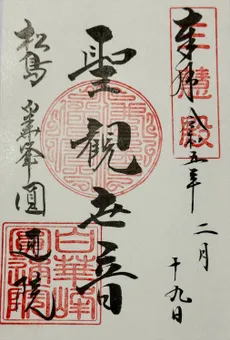 奉拝
五年
二月
十九日
聖観世音
松島
圓通院
白華峰
圓通院